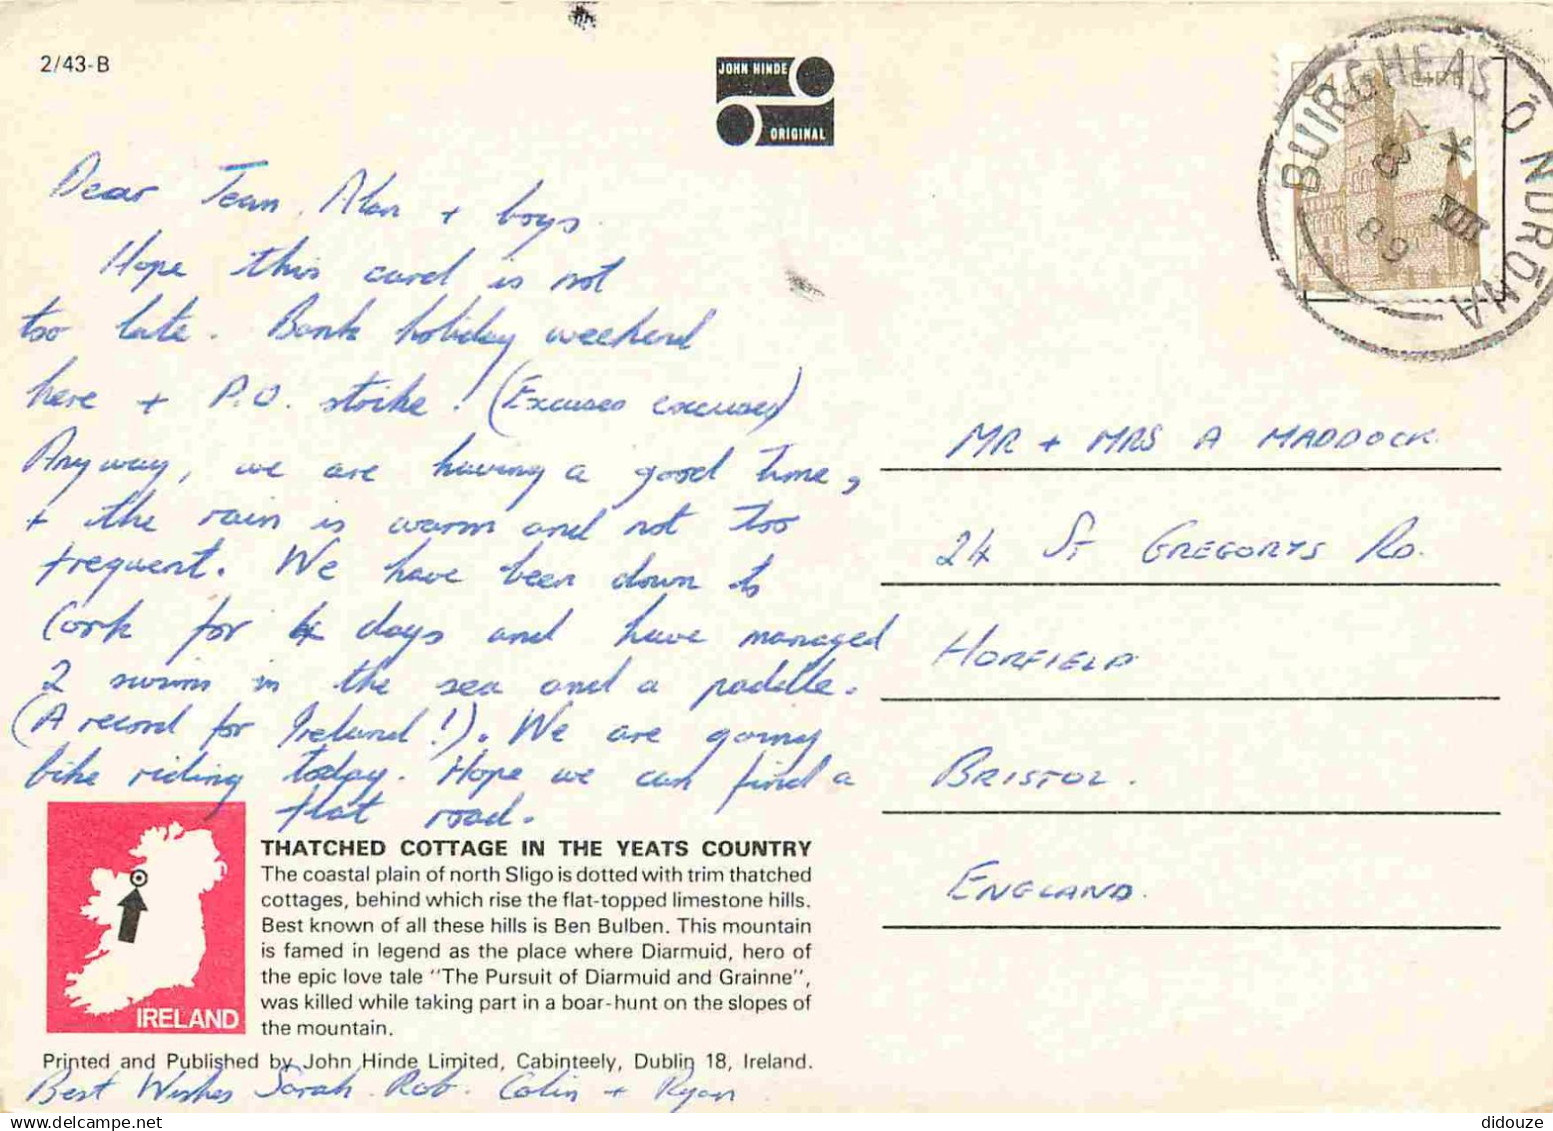 2/43-B
JOHN HINDE
ORIGINAL
BUIRGHEAS Ó NDRÓNA
8
VIII
89
Dear Jean, Alan + boys.
Hope this card is not
too late. Bank holiday weekend
here + P.O. strike! (Excuses excuses)
Anyway, we are having a good time,
+ the rain is warm and not too
frequent. We have been down to
Cork for 4 days and have managed
2 swims in the sea and a paddle.
(A record for Ireland!). We are going
bike riding today. Hope we can find a
flat road.
MR + MRS A MADDOCK
24 St GREGORYS RD.
HORFIELD
BRISTOL.
ENGLAND.
IRELAND
THATCHED COTTAGE IN THE YEATS COUNTRY
The coastal plain of north Sligo is dotted with trim thatched
cottages, behind which rise the flat-topped limestone hills.
Best known of all these hills is Ben Bulben. This mountain
is famed in legend as the place where Diarmuid, hero of
the epic love tale "The Pursuit of Diarmuid and Grainne",
was killed while taking part in a boar-hunt on the slopes of
the mountain.
Printed and Published by John Hinde Limited, Cabinteely, Dublin 18, Ireland.
Best Wishes Sarah. Rob. Colin + Ryan
didouze